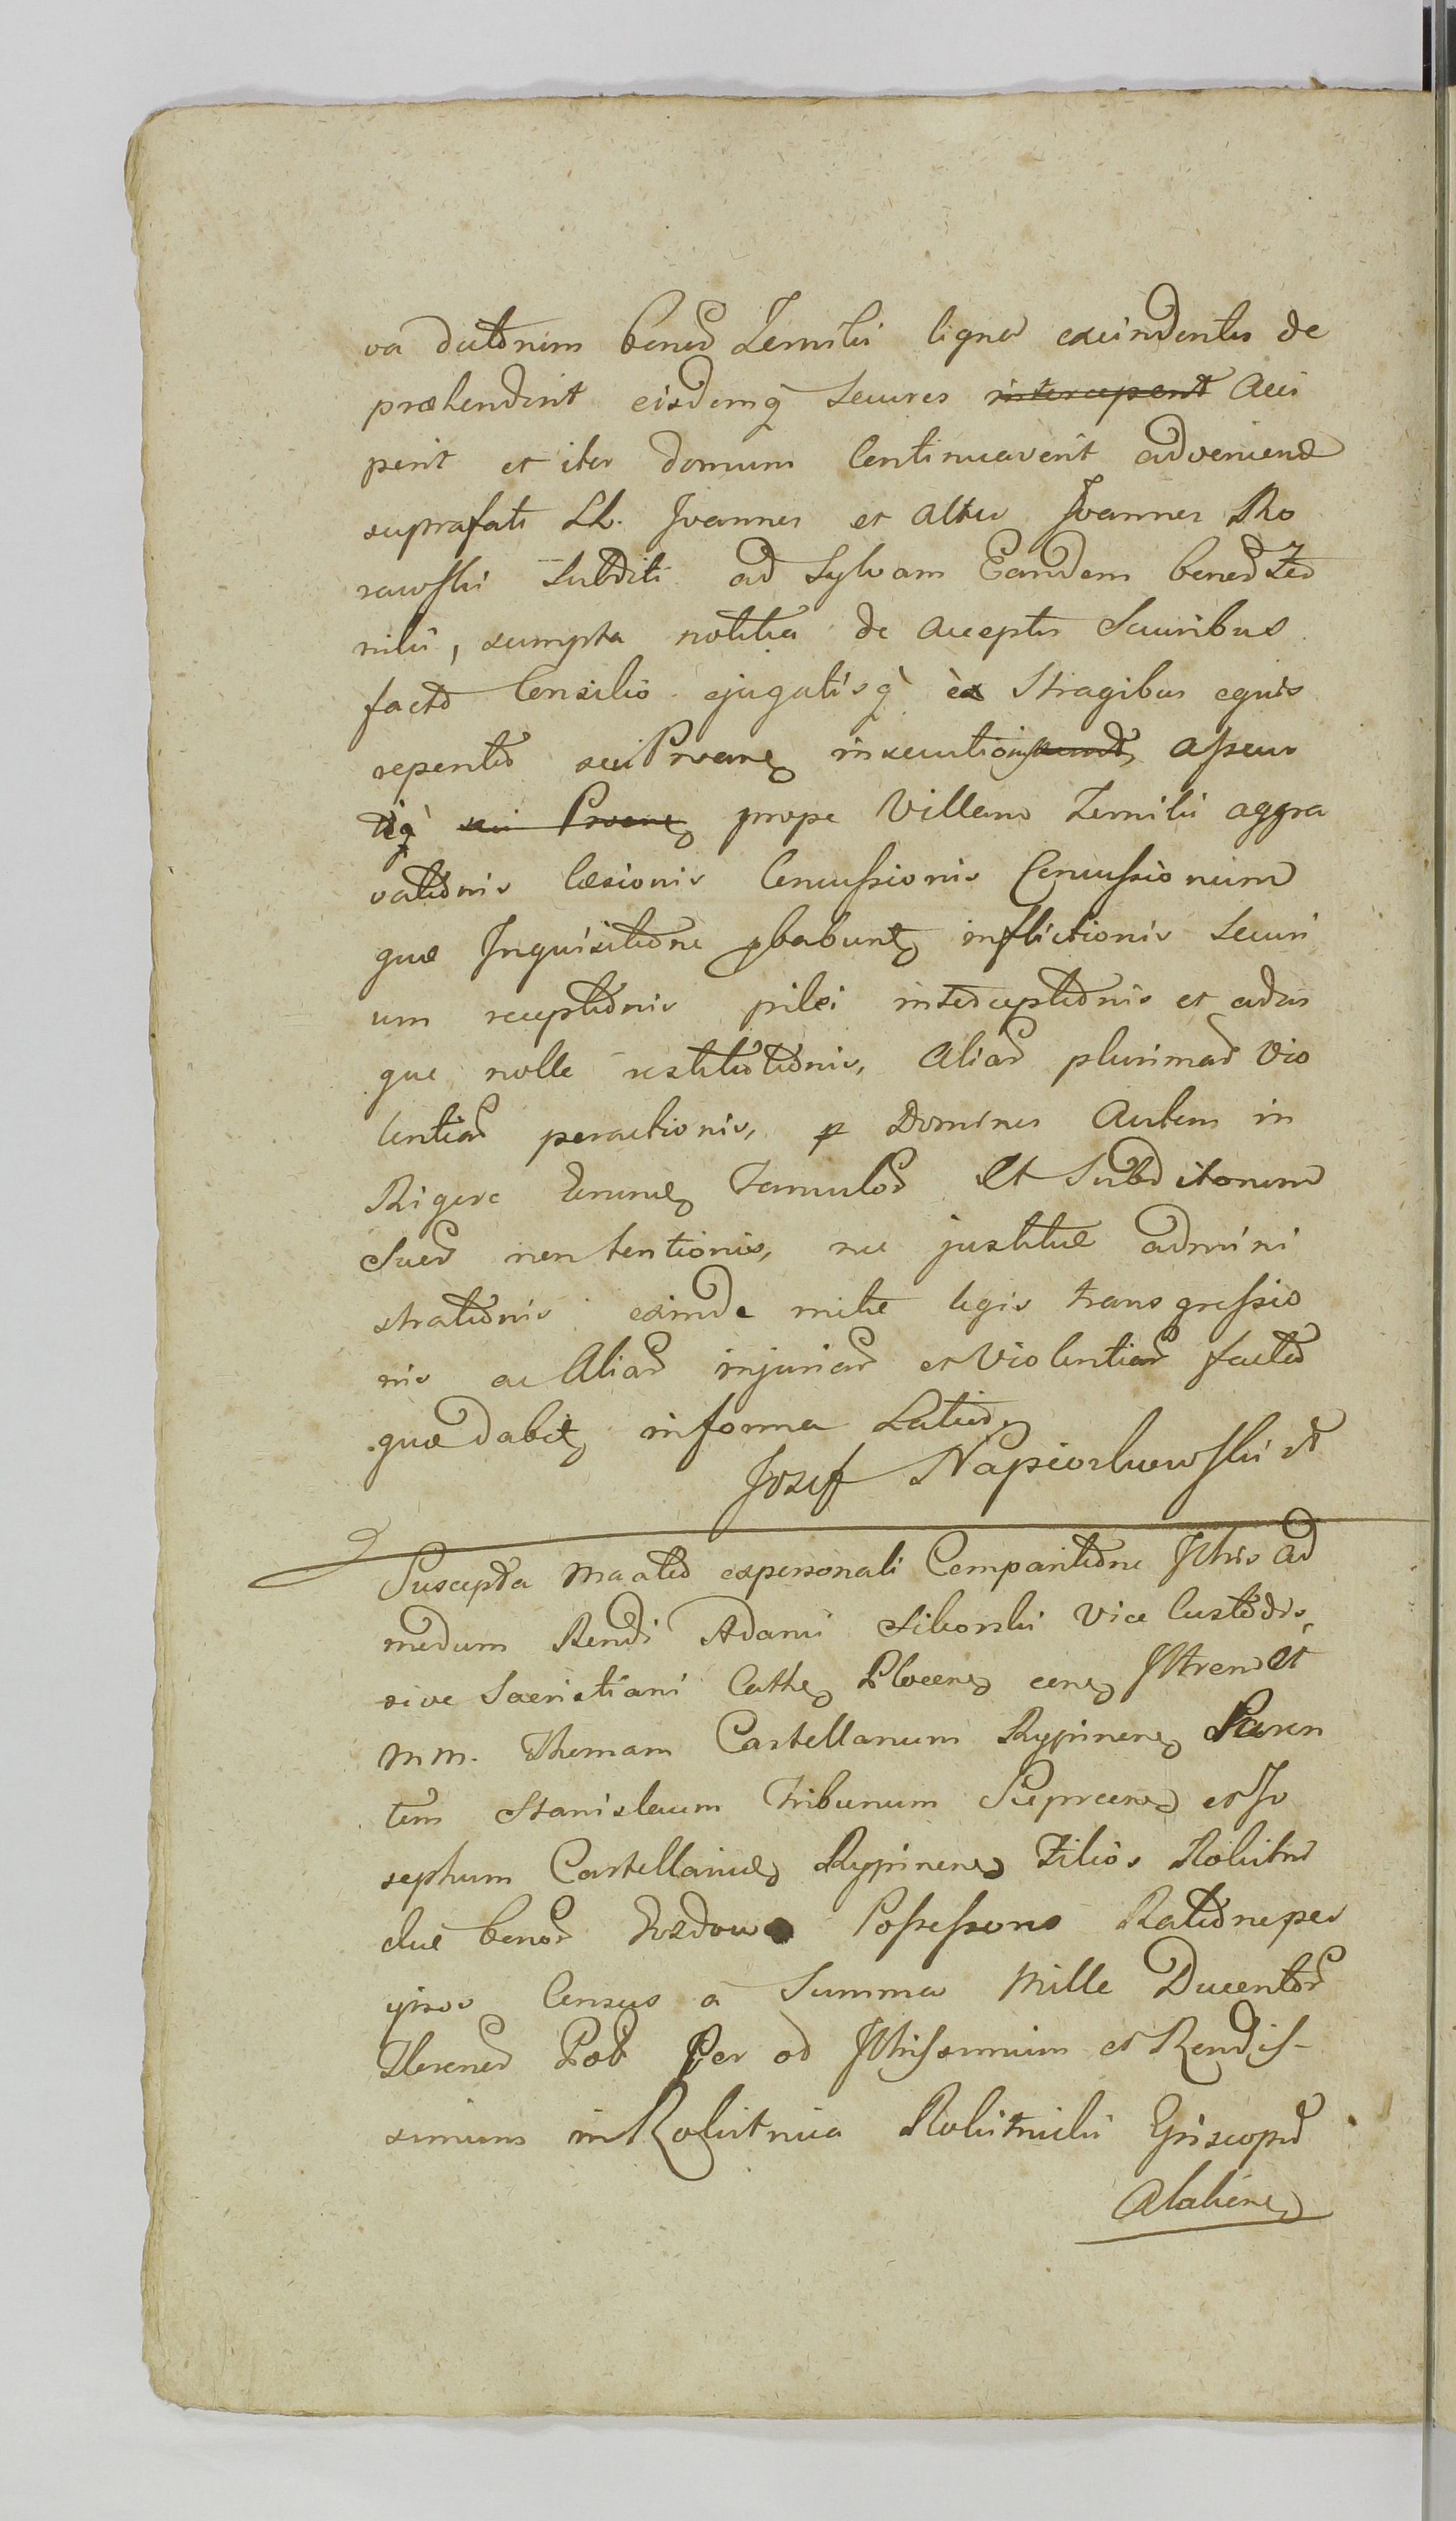 va dictorum bonor Zernikii ligna excindentes de
præhenderit eisdemq secures intercaperit Acce
perit et iter domum Continuaverit advenienð
suprafati LL. Joannes et Alter Joannes Mo
rawski Subditi ad Sylvam Eandem bonor Zer
nikii, sumpta notitia de acceptis Securibus
facto Consilio ejugatisq ex Stragibus equis
repentes seu Proane insecutionis Assecu
tisq seu Proane prope Villam Zernikii aggra
vationis læsionis Concussionis Concussionum
quæ Inquisitione pbabunt inflictionis Secu
um receptionis pilei interceptionis et ados
que nolle restitutionis, Aliar plurimar Vio
lentiar peractionis, p Dominos Autem in
Rigore famulor Et Subditorum
Suor non tentionis, nec justitiæ admini
strationis exinde milie legis transgressio
nis ac Aliar injuriar et Violentiar factor
quæ dabit in forma Latior
Josef Napiorkowski
Suscepta ma ater ex personali Comparitione Jllris Ad
modum Rendi Adami Sikorski Vice Custodis
sive Sacristiani Cathe Plocene cone Jllrem Et
MM. Thomam Castellanum Rypinens Paren
tem Stanislaum Tribunum Sieprcens et Jo
sephum Castellanid Rypinens Filios Rokitni
cliie bonor Possessores Ratione per
Census a Summa Mille Ducentor
Florenor Pol Per od Jllrissimum et Rendis-
simum in Rokitnica Rokitnicki Episcopum
Alaliens